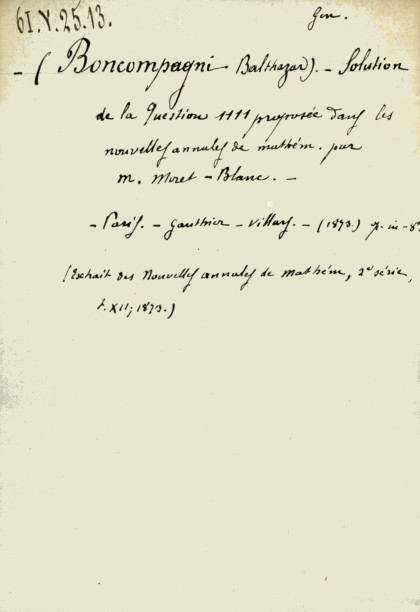 6I.Y.25.13.
Gen.
- (Boncompagni Balthazar). - Solution
de la Question 1111 proposée dans les
nouvelles annales de mathém. par
m. Moret - Blanc. -
- Paris. - Gauthier - Villars. - (1873.) in-8º.
(Extrait des Nouvelles annales de Mathém, 2e série,
t. XII; 1873.)